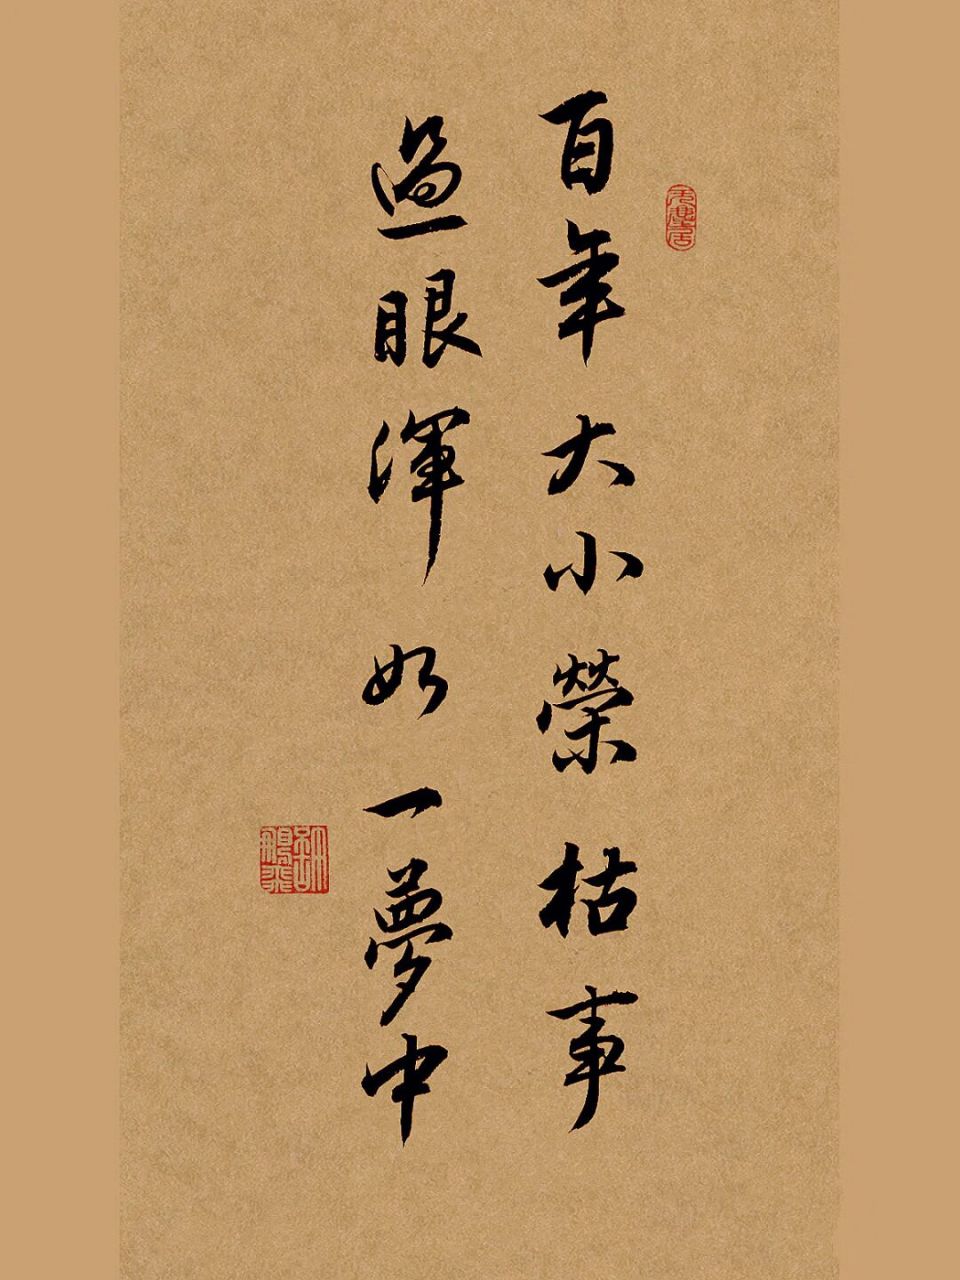 百年大小榮枯事
過眼渾如一夢中